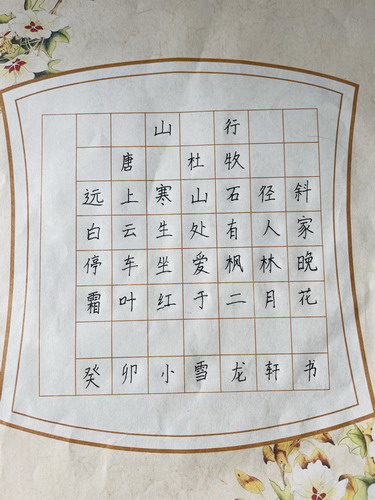 山行
唐 杜牧
远上寒山石径斜
白云生处有人家
停车坐爱枫林晚
霜叶红于二月花
癸卯小雪龙轩书